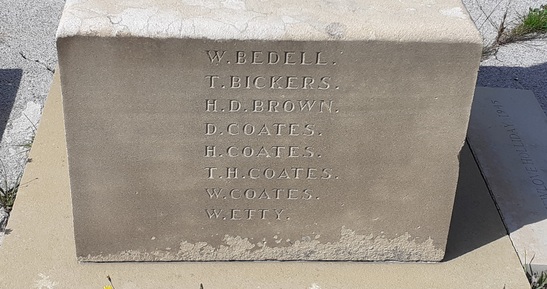 W. BEDELL.
T. BICKERS.
H. D. BROWN.
D. COATES.
H. COATES.
T. H. COATES.
W. COATES.
W. ETTY.